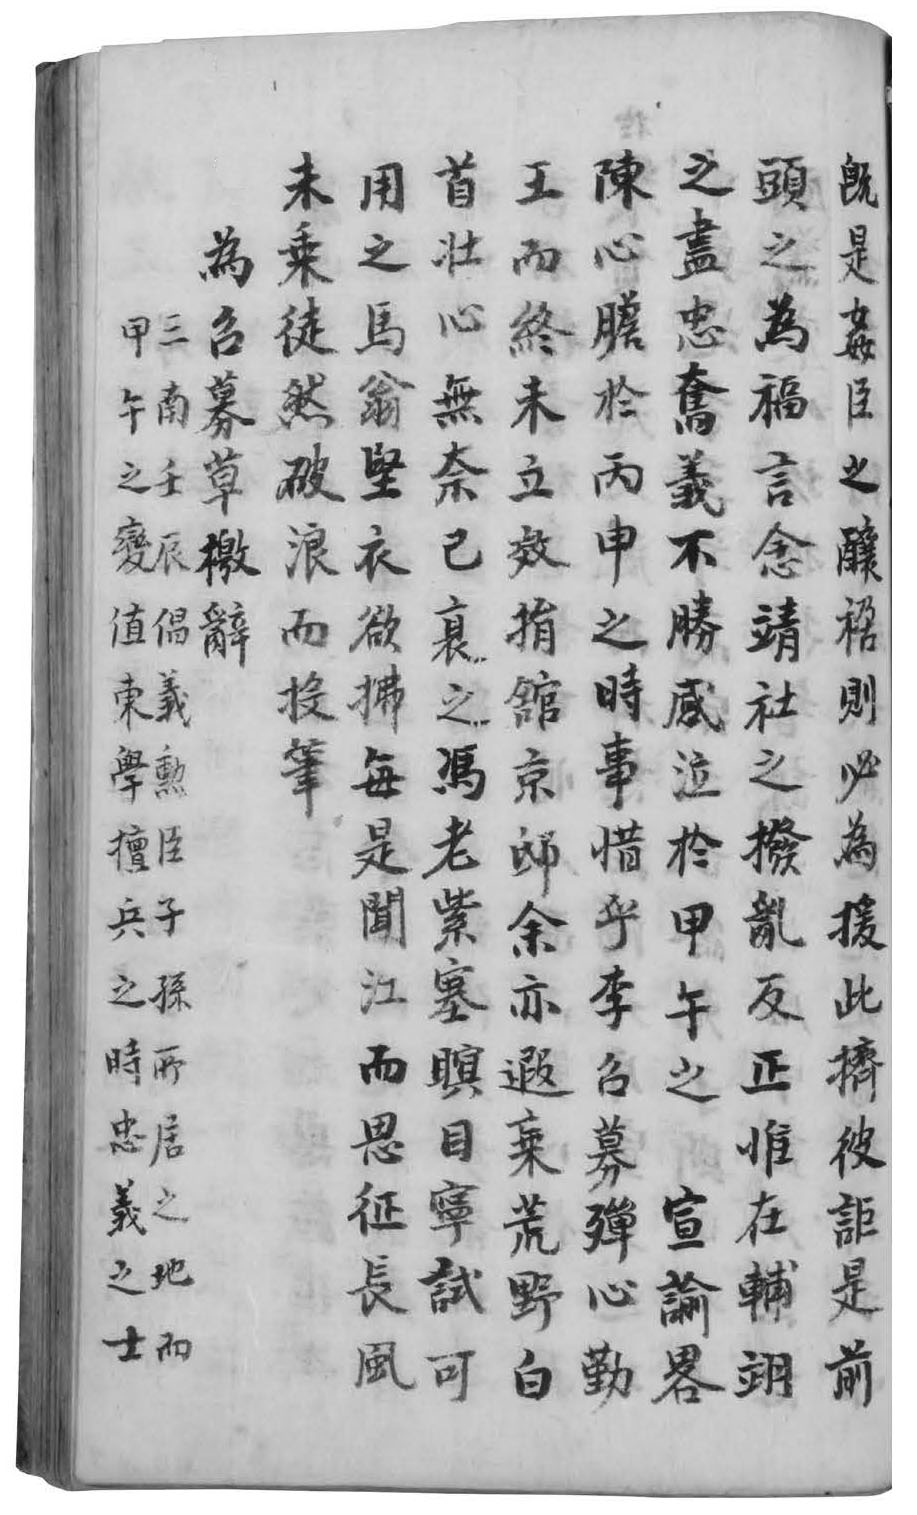 旣是姦臣之釀禍則必爲援此擠彼詎是前
頭之爲福言念靖社之撥亂反正惟在輔翊
之盡忠奮義不勝感泣於甲午之 宣諭畧
陳心膽於丙申之時事惜乎李召募殫心勤
王而終未立效捐舘京邸余亦遐棄荒野白
首壯心無奈已衰之馮老紫塞瞑目寧試可
用之馬翁堅衣欲拂每是聞江而思征長風
未乘徒然破浪而投筆
爲召募草檄辭
三南壬辰倡義勳臣子孫所居之地而
甲午之變值東學擅兵之時忠義之士